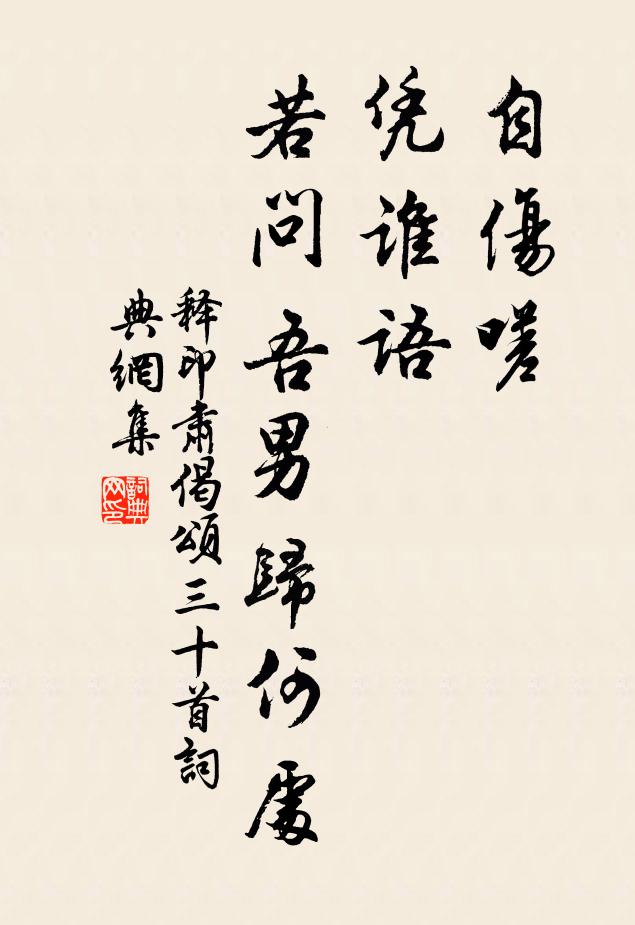 自傷嗟
凭誰語
若問吾男歸何處
释印肅偈頌三十首詞
典網集
詞典
网印